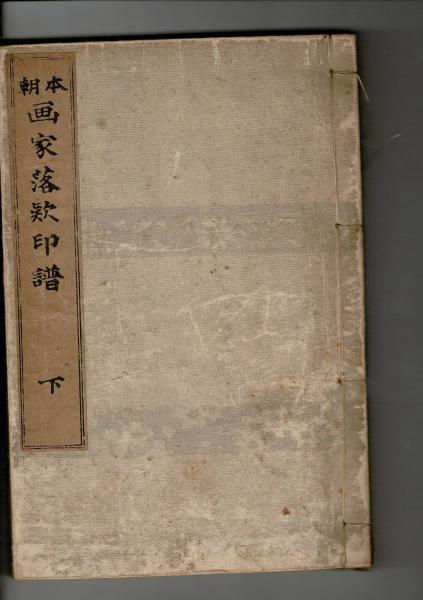 本朝
画家落款印譜
下